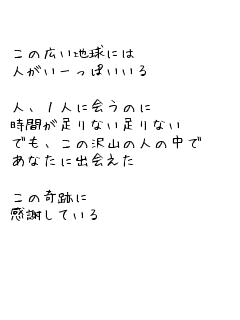 この広い地球には
人がいーっぱいいる
人、1人に会うのに
時間が足りない足りない
でも、この沢山の人の中で
あなたに出会えた
この奇跡に
感謝している